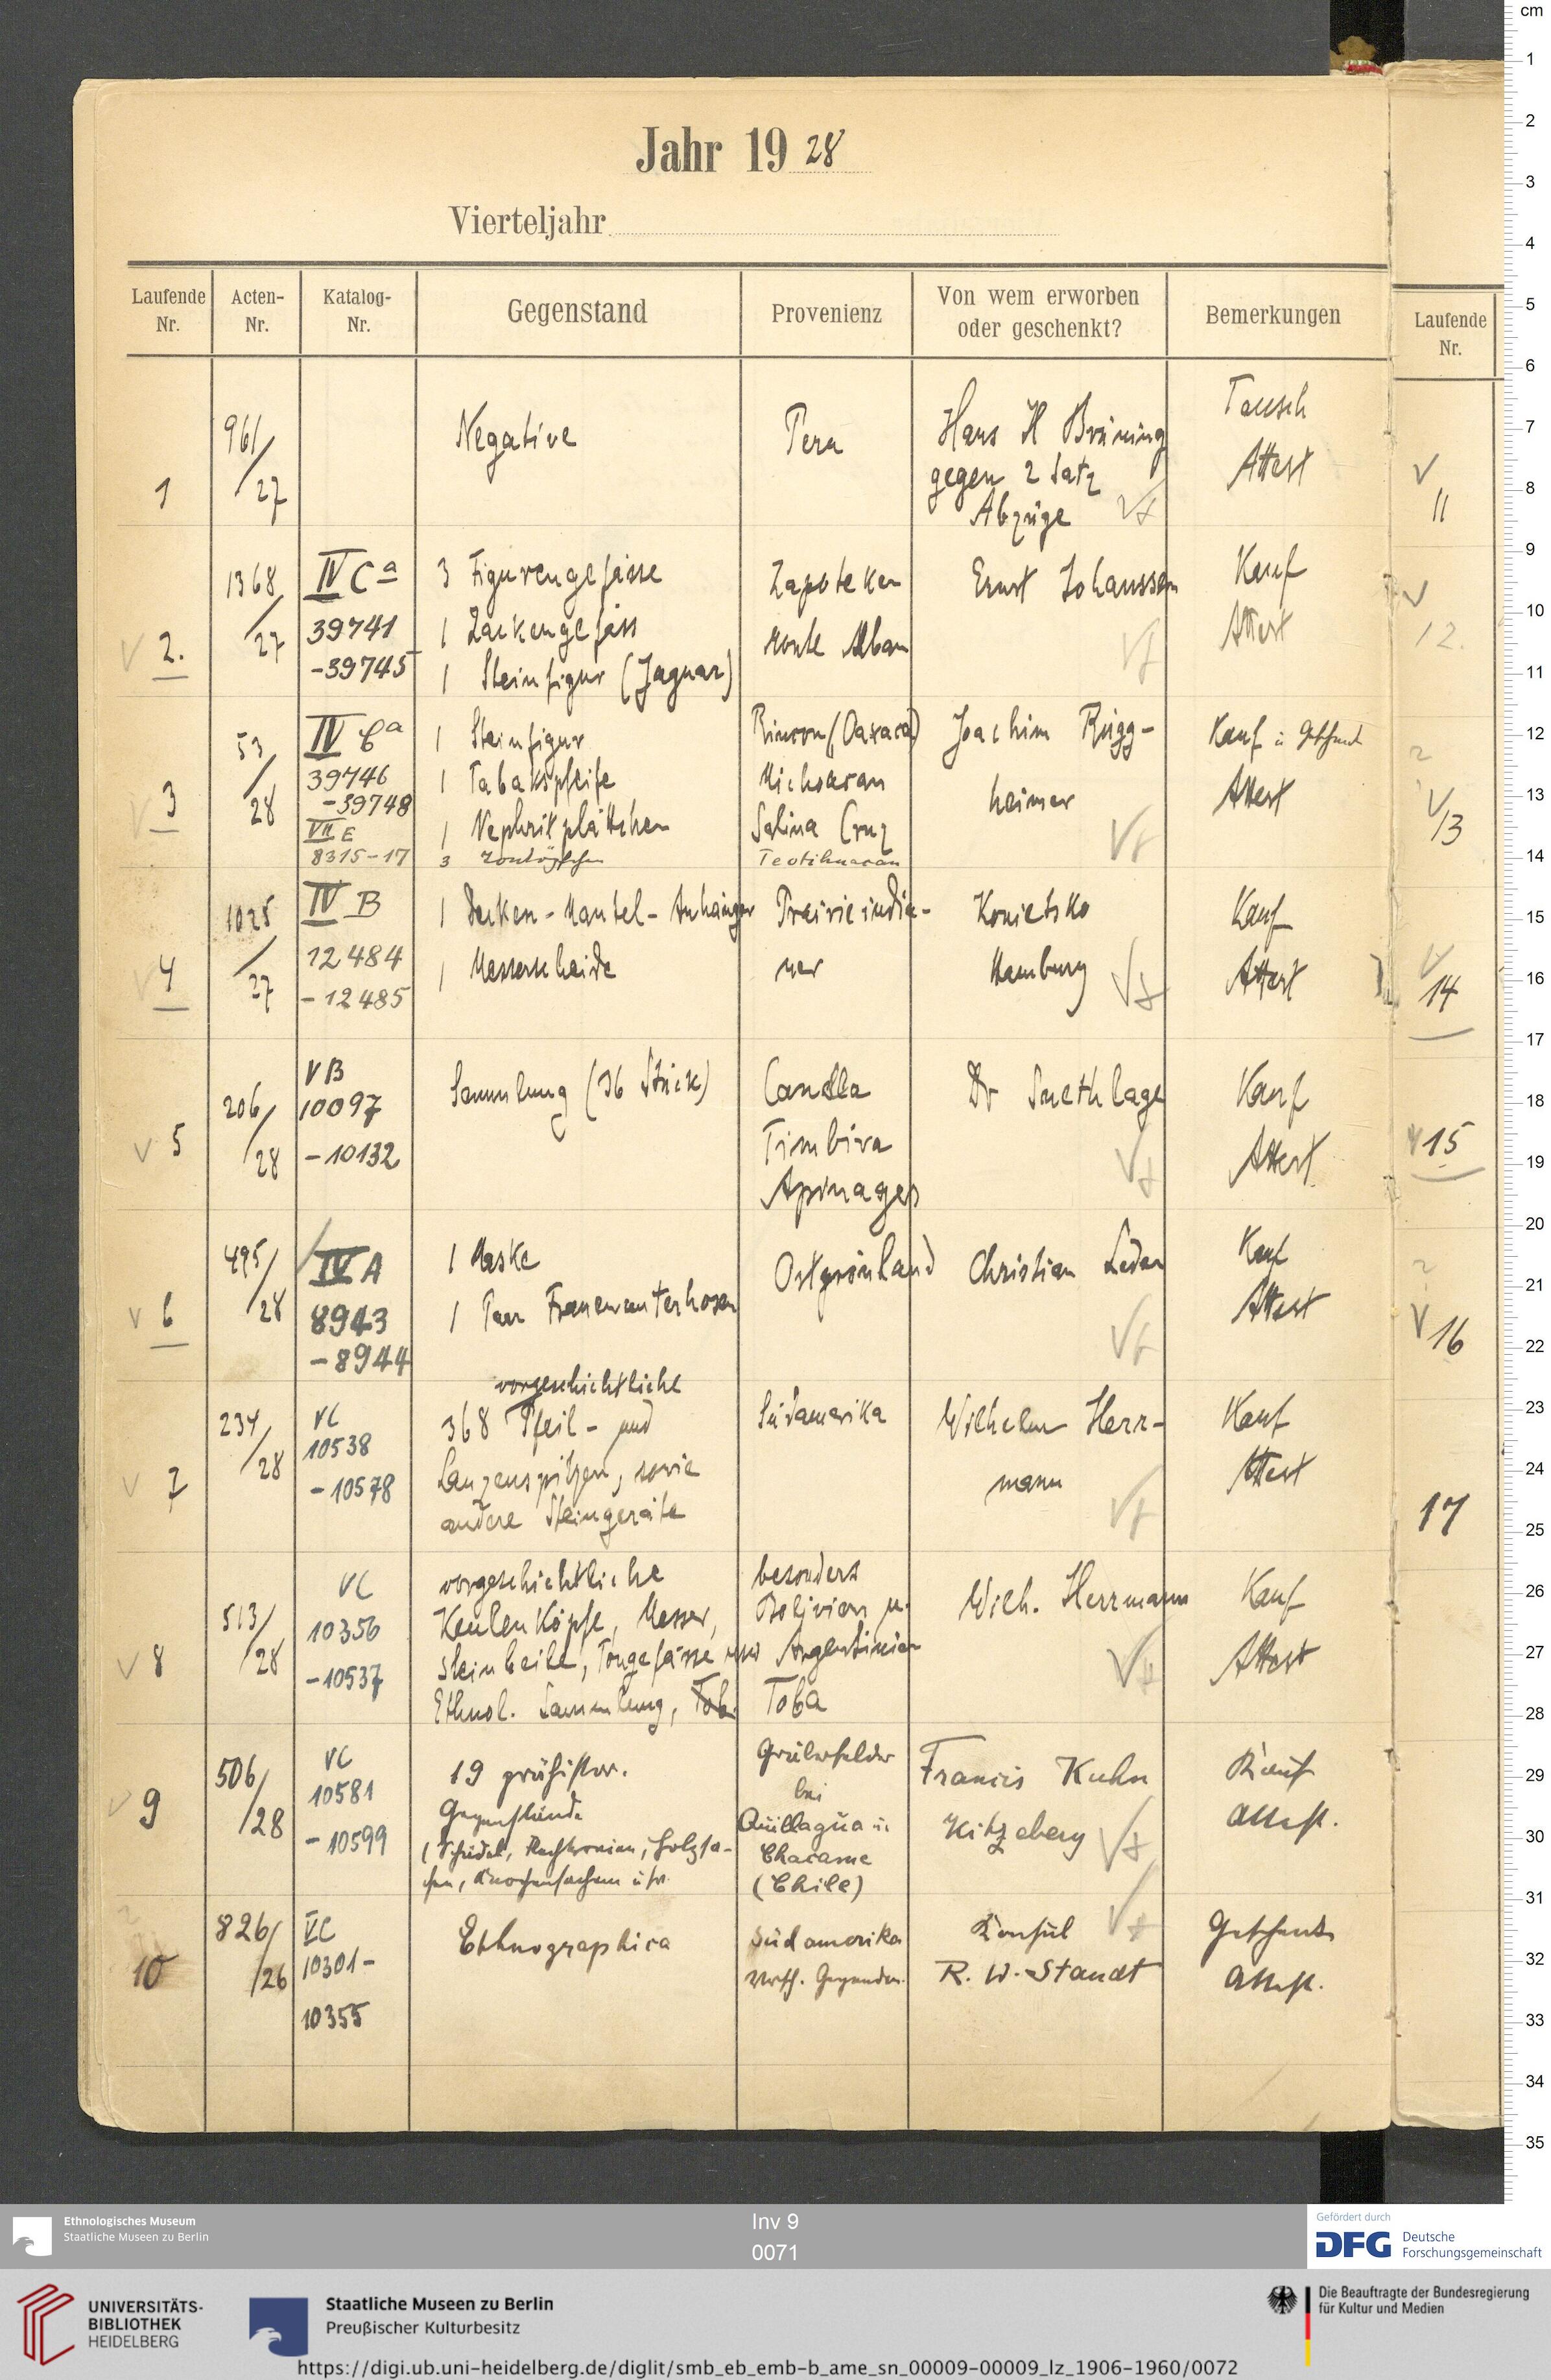 Jahr 1928
Vierteljahr
Laufende Nr.
Acten-Nr.
Katalog-Nr.
Gegenstand
Provenienz
Von wem erworben oder geschenkt?
Bemerkungen
1
961/27
Negative
Peru
Hans H Brüning
gegen 2 Satz
Abzüge
Tausch
Attest
2.
1368/27
IV Ca
39741
-39745
3 Figurengefässe
1 Zackengefäss
1 Steinfigur (Jaguar)
Zapoteken
Monte Alban
Ernst Johanssen
Kauf
Attest
3
53/28
IV Ca
39746
-39748
VII E
8315-17
1 Steinfigur
1 Tabakspfeife
1 Nephritplättchen
3
Rincon (Oaxaca)
Michoacan
Salina Cruz
Teotihuacan
Joachim Rügg-
heimer
Kauf u Geschenk
Attest
4
1025/27
IV B
12484
-12485
1 Decken-Mantel-Anhänger
1 Messerscheide
Prairieindia-
ner
Konietzko
Hamburg
Kauf
Attest
5
206/28
VB
10097
-10132
Sammlung (36 Stück)
Canella
Timbira
Apinages
Dr Snethlage
Kauf
Attest
6
495/28
IV A
8943
-8944
1 Maske
1 Paar Frauenunterhosen
Ostgrönland
Christian Leden
Kauf
Attest
7
234/28
VC
10538
-10578
vorgeschichtliche
368 Pfeil- und
Lanzenspitzen, sowie
andere Steingeräte
Südamerika
Wilhelm Herr-
mann
Kauf
Attest
8
513/28
VC
10356
-10537
vorgeschichtliche
Keulenköpfe, Messer,
Steinbeile, Tongefässe usw
Ethnol. Sammlung, Tob.
besonders
Bolivien u.
Argentinien
Toba
Wilh. Herrmann
Kauf
Attest
9
506/28
VC
10581
-10599
19 prähistor.
Gegenstände
(Schädel, Holzsa-
chen, Knochensachen usw.
Gräberfelder
bei
Quillagua u.
Chacame
(Chile)
Francis Kuhn
Kitzeberg
Kauf
Attest.
10
826/26
VC
10301-
10355
Ethnographica
Südamerika
versch. Gegenden.
Konsul
R. W. Staudt
Geschenk
Attest.
Laufende Nr.
11
12.
13
14
15
16
17
cm
1
2
3
4
5
6
7
8
9
10
11
12
13
14
15
16
17
18
19
20
21
22
23
24
25
26
27
28
29
30
31
32
33
34
35
Ethnologisches Museum
Staatliche Museen zu Berlin
Inv 9
0071
Gefördert durch
DFG Deutsche
Forschungsgemeinschaft
UNIVERSITÄTS-
BIBLIOTHEK
HEIDELBERG
Staatliche Museen zu Berlin
Preußischer Kulturbesitz
Die Beauftragte der Bundesregierung
für Kultur und Medien
https://digi.ub.uni-heidelberg.de/diglit/smb_eb_emb-b_ame_sn_00009-00009_lz_1906-1960/0072